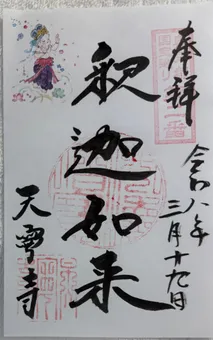 奉拝
令和八年
三月十九日
釈迦如来
天寧寺